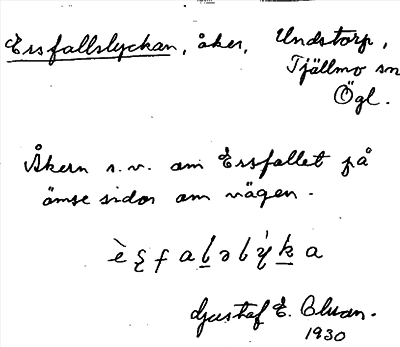 Ersfallslyckan, åker, Undstorp,
Tjällmo sn
Ögl.
Åkern s.v. om Ersfallet på
ömse sidor om vägen.
Gustaf E.
1930